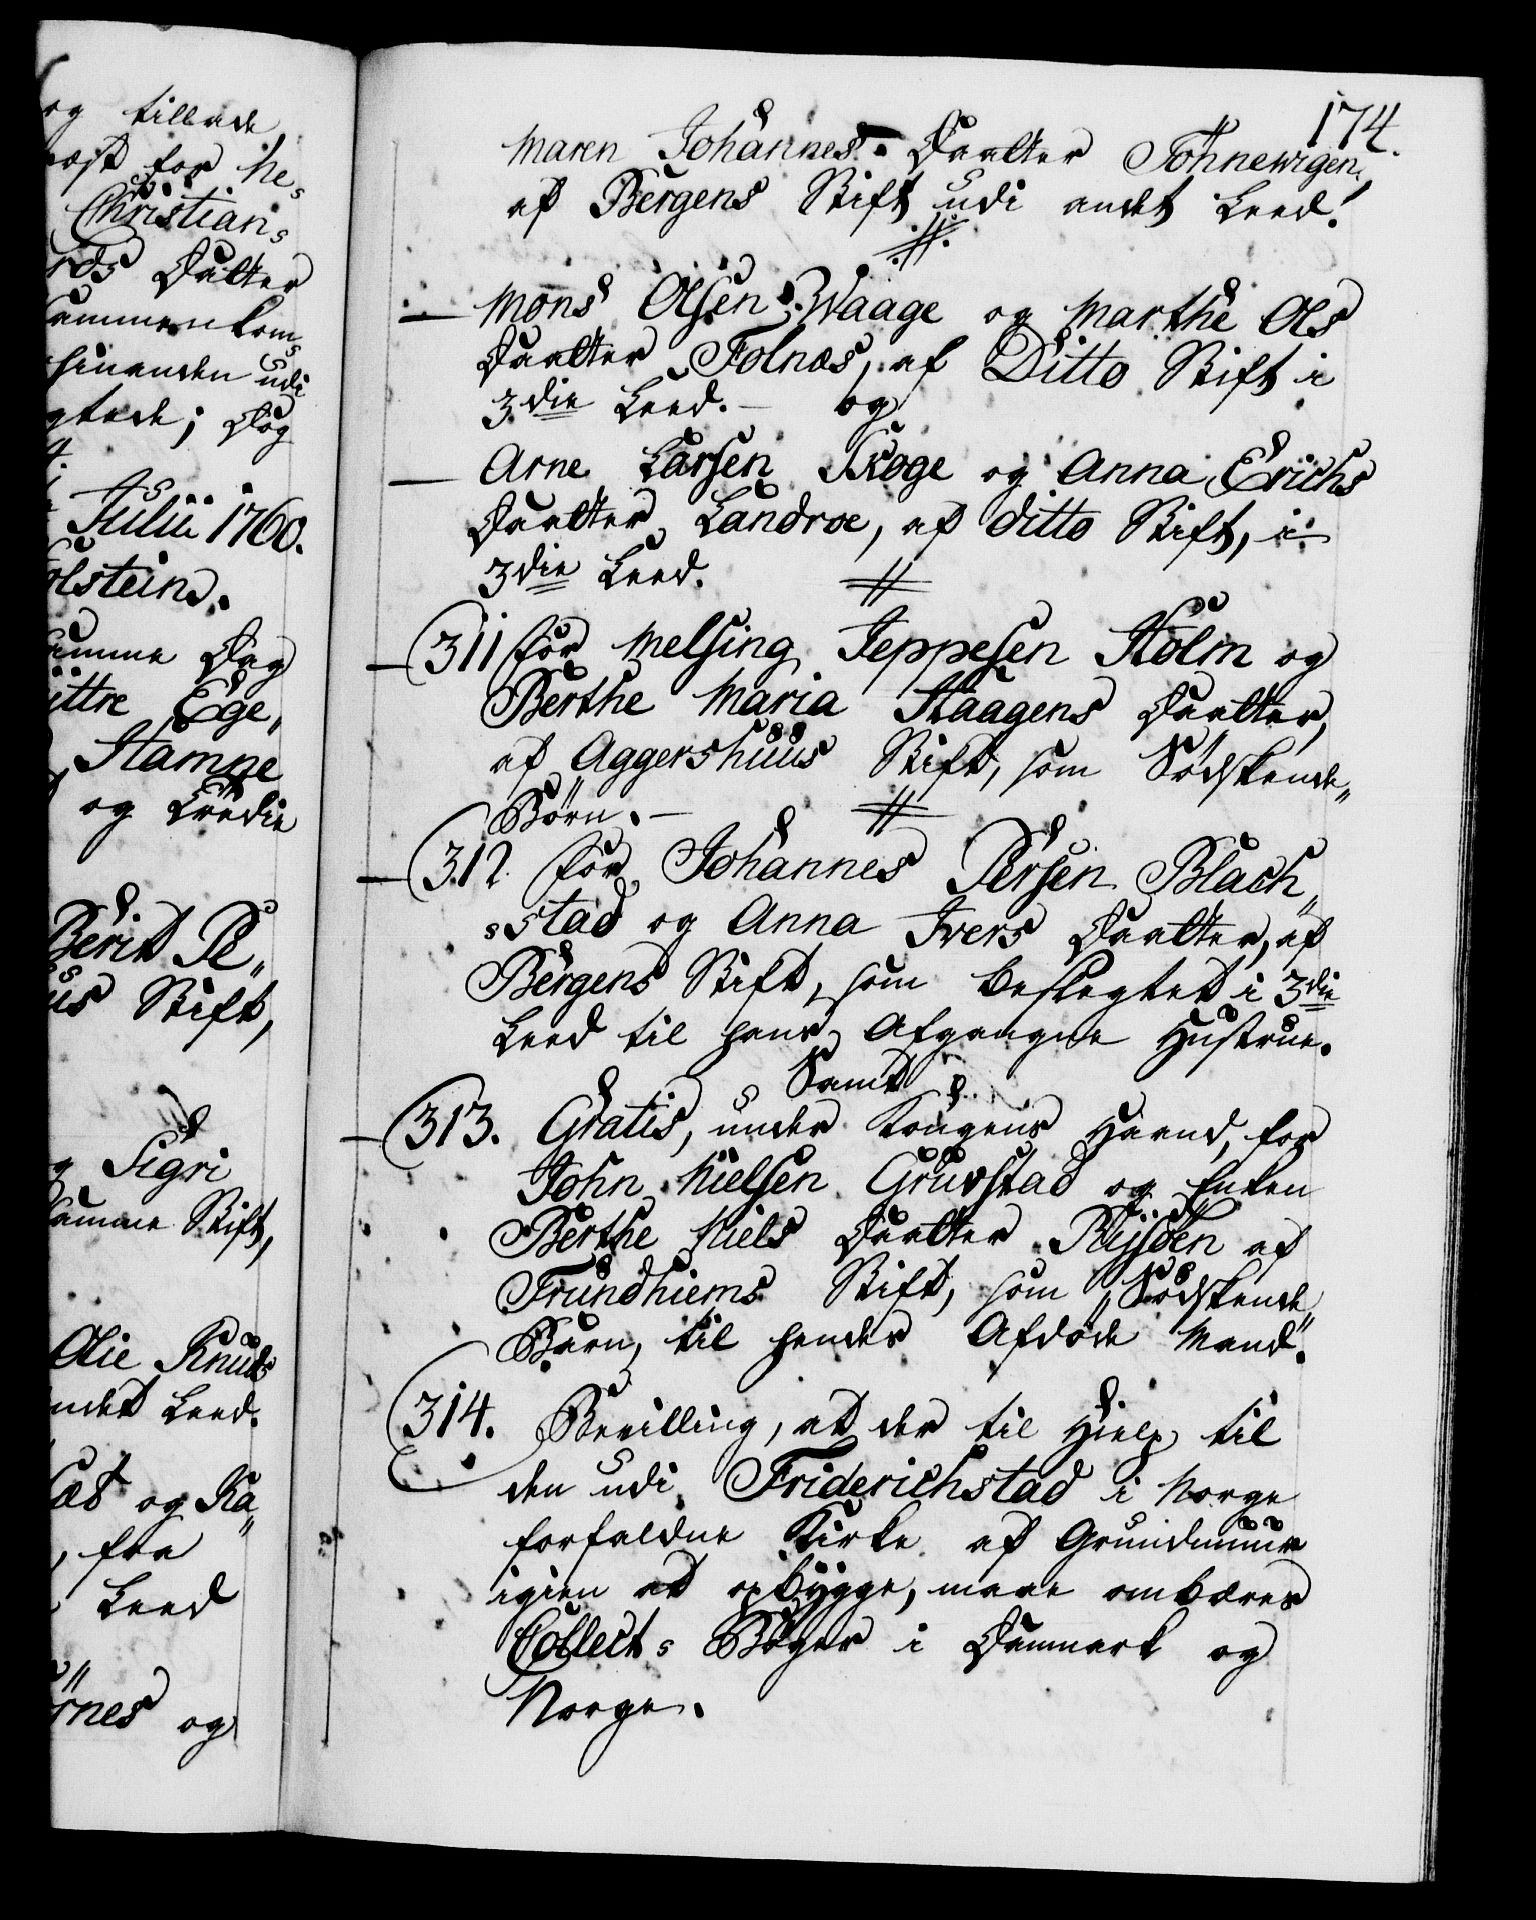 og tillade
næst for he-
Christian-
rds Datter
sammenkom-
hinanden udi
gtede; Dog
Julii 1760.
olstein.
samme Dag
ittre Ege„
Hampe
og tredie
Berit Pe„
us Stift,
Sigri
samme Stift,
Olie Knuds
andet Leed.
og Ka„
, fra
Leed
rnes og
174.
Maren Johannes- Daatter Tönnewigen,
af Bergens Stift udi andet Leed.
Mons Olsen Waage og Marthe Ols
Daatter Folnæs, af Ditto Stift i
3die Leed. — og
Arne Larsen Skoge og Anna Erichs
Daatter Landroe, af ditto Stift, i
3die Leed.
311 for Melsing Jeppesen Holm og
Berthe Maria Haagens Daatter,
af Aggershuus Stift, som Södskende„
Börn. —
312. for Johannes Persen Blach„
-stad og Anna Ivers Daatter, af
Bergens Stift, som beslegtet i 3die
Leed til hans Afgangne Hustrue.
Samt
313. Gratis, under Kongens Haand, for
John Nielsen Gruvstad og Enken
Berthe Niels Daatter Rijsden af
Trundhiems Stift, som Södskende„
Barn, til hendes Afdöde Mand.
314. Bevilling, at der til Hielp til
den udi Friderichstad i Norge
forfaldne Kirke af Grundmuur
igien at opbygge, maae ombæres
Collect- Böger i Danmark og
Norge.